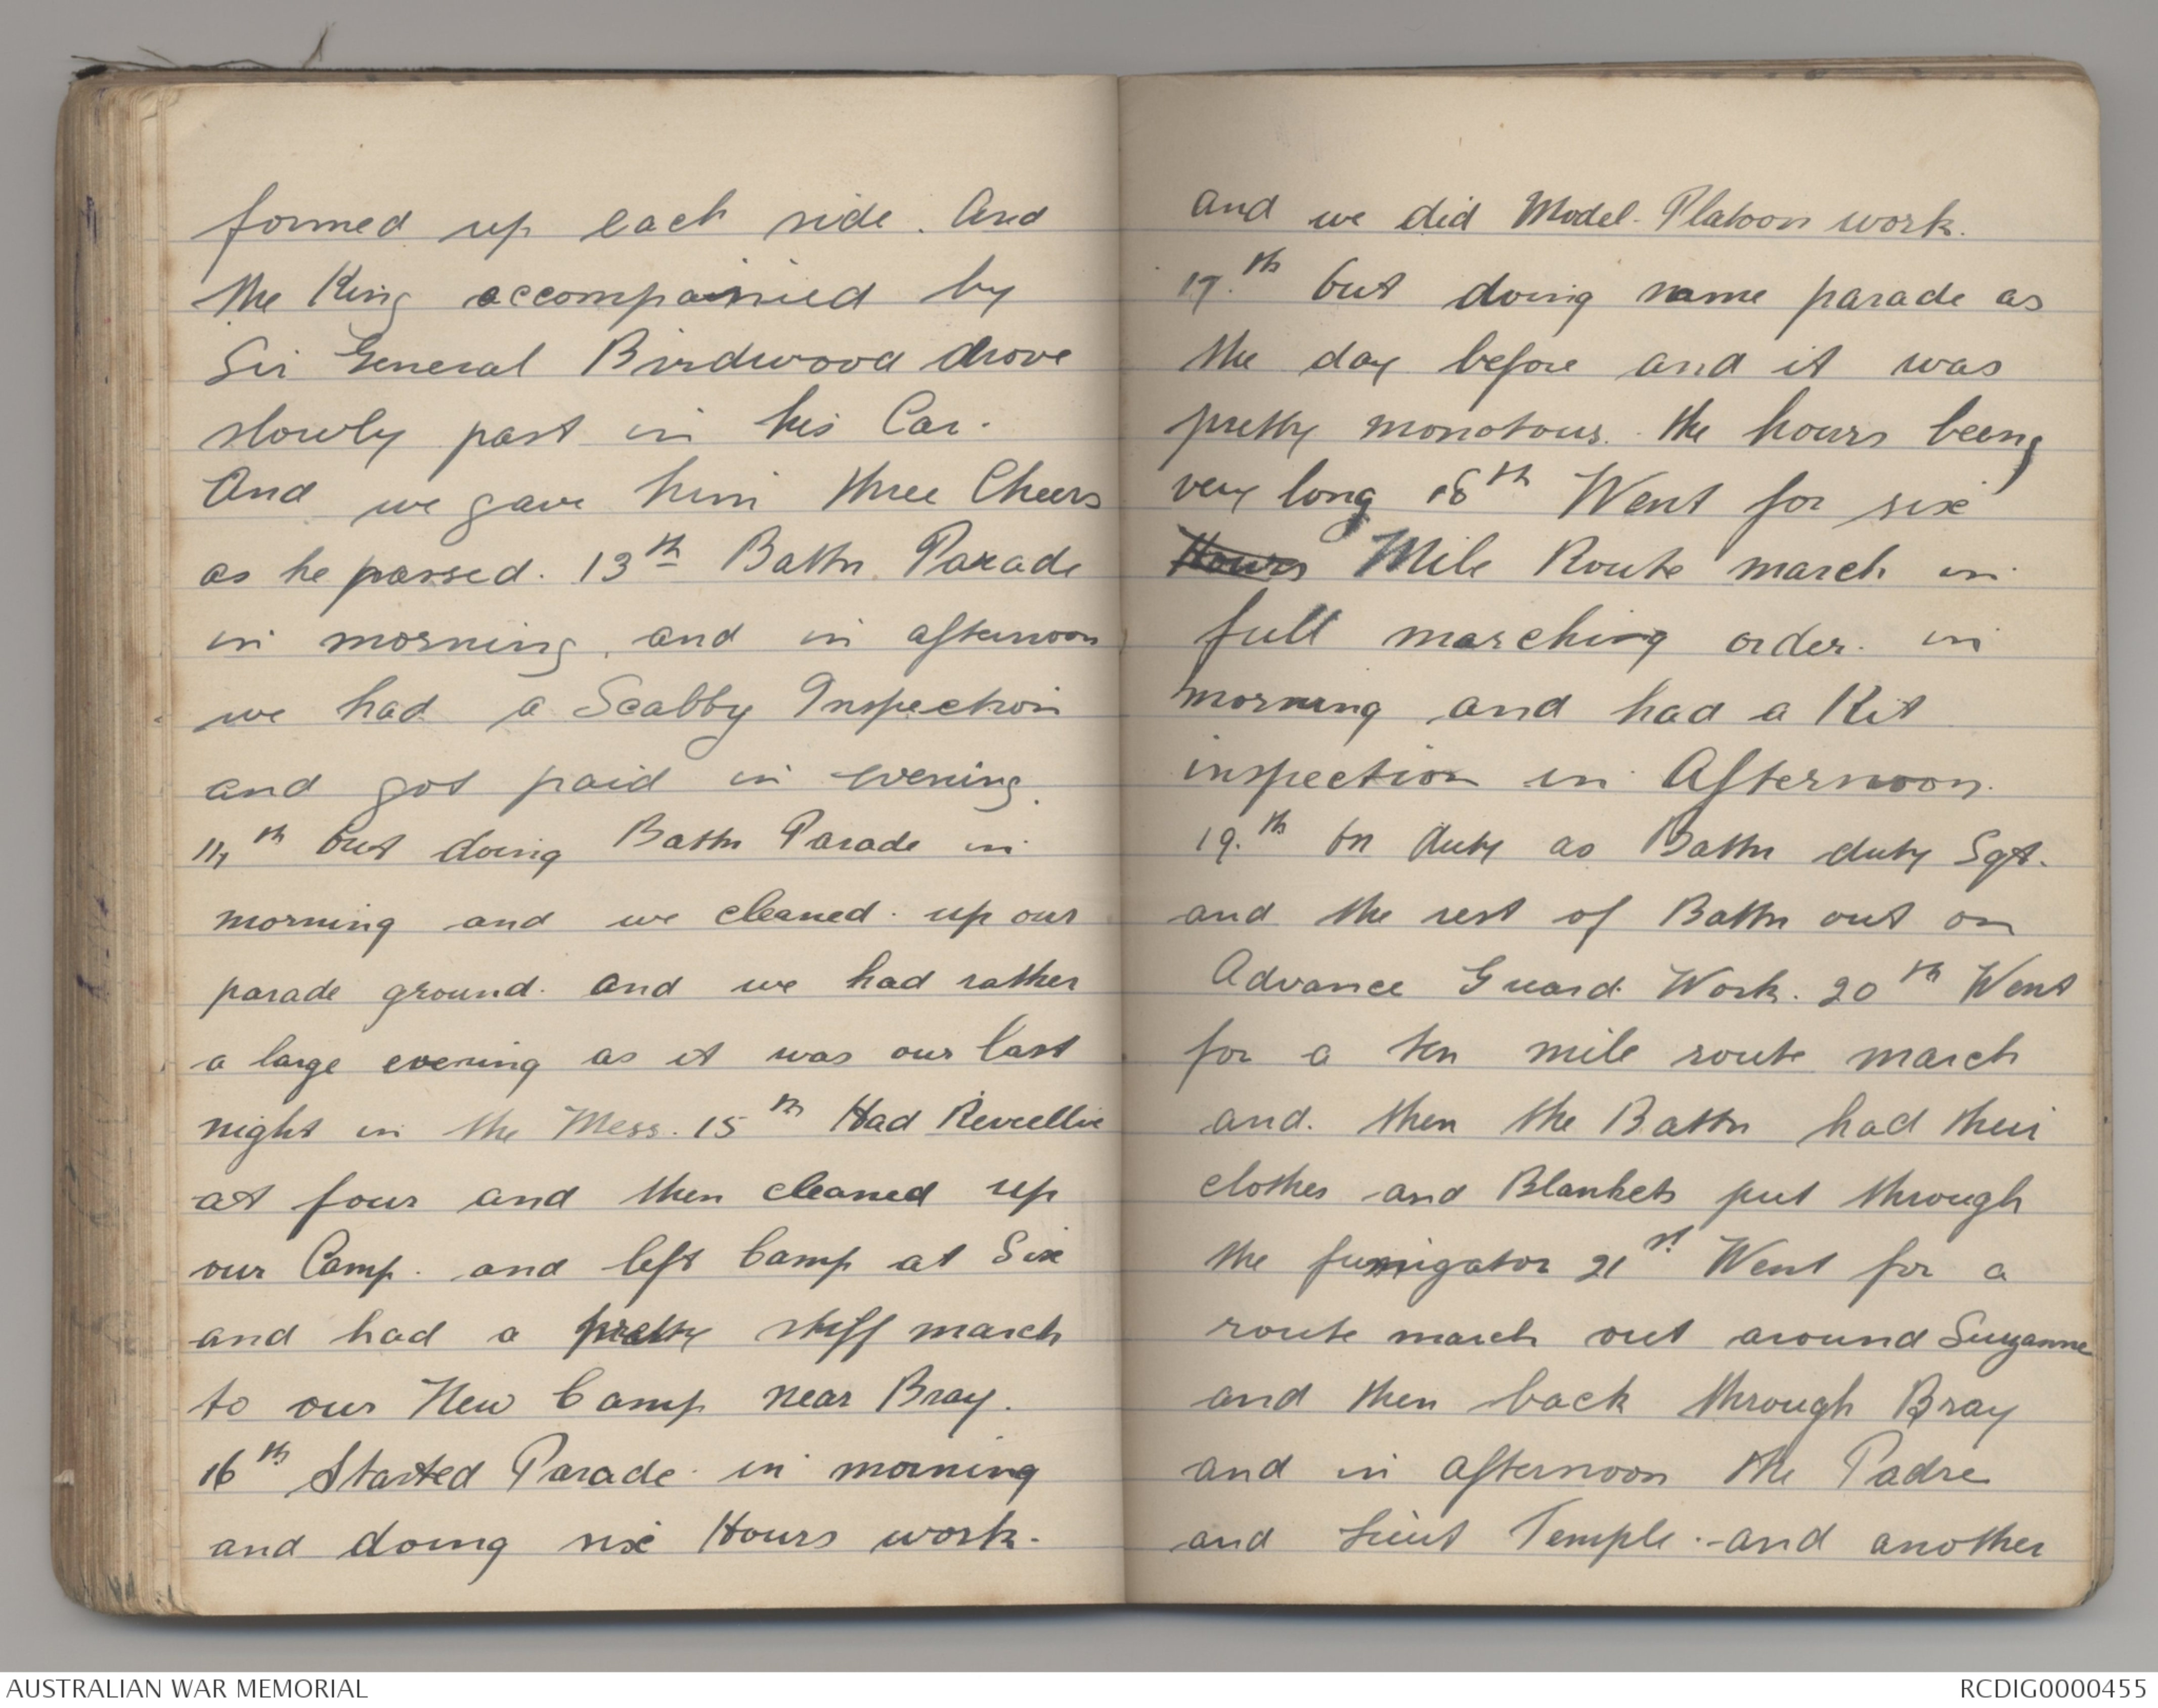 formed up each side. And
the King accompainied by
Sir General Birdwood drove
slowly past in his Car.
And we gave him three Cheers
as he passed. 13th Battn Parade
in morning, and in afternoon
we had a Scabby Inspection
and got paid in evening.
14th Out doing Battn Parade in
morning and we cleaned up our
parade ground. and we had rather
a large evening as it was our last
night in the Mess. 15th Had Reveellie
at four and then cleaned up
our Camp. and left Camp at Six
and had a pretty stiff march
to our New Camp near Bray.
16th Started Parade in morning
and doing six Hours work.
and we did Model Platoon work.
17th Out doing same parade as
the day before and it was
pretty monotous. the hours being
very long 18th Went for six
Hours Mile Route march in
full marching order. in
morning and had a Kit
inspection in Afternoon.
19.th On duty as Battn duty Sgt.
and the rest of Battn out on
Advance Guard Work. 20th Went
for a ten mile route march
and. then the Battn had their
clothes and Blankets put through
the fumigator 21st Went for a
route march out around Suzanne
and then back through Bray
and in afternoon the Padre
and Lieut Temple. and another
AUSTRALIAN WAR MEMORIAL
RCDIG0000455